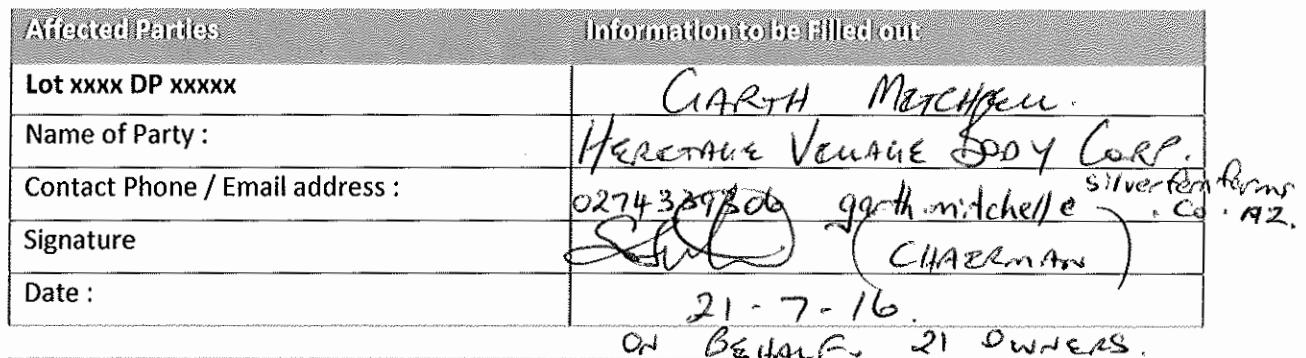 Affected Parties Information to be Filled out
Lot xxxx DP xxxxx GARTH MITCHELL.
Name of Party : HERITAGE VILLAGE BODY CORP.
Contact Phone / Email address : garth.mitchell@ silverfernfarms
.co.nz.
Signature (CHAIRMAN)
Date : 21-7-16.
ON BEHALF 21 OWNERS.